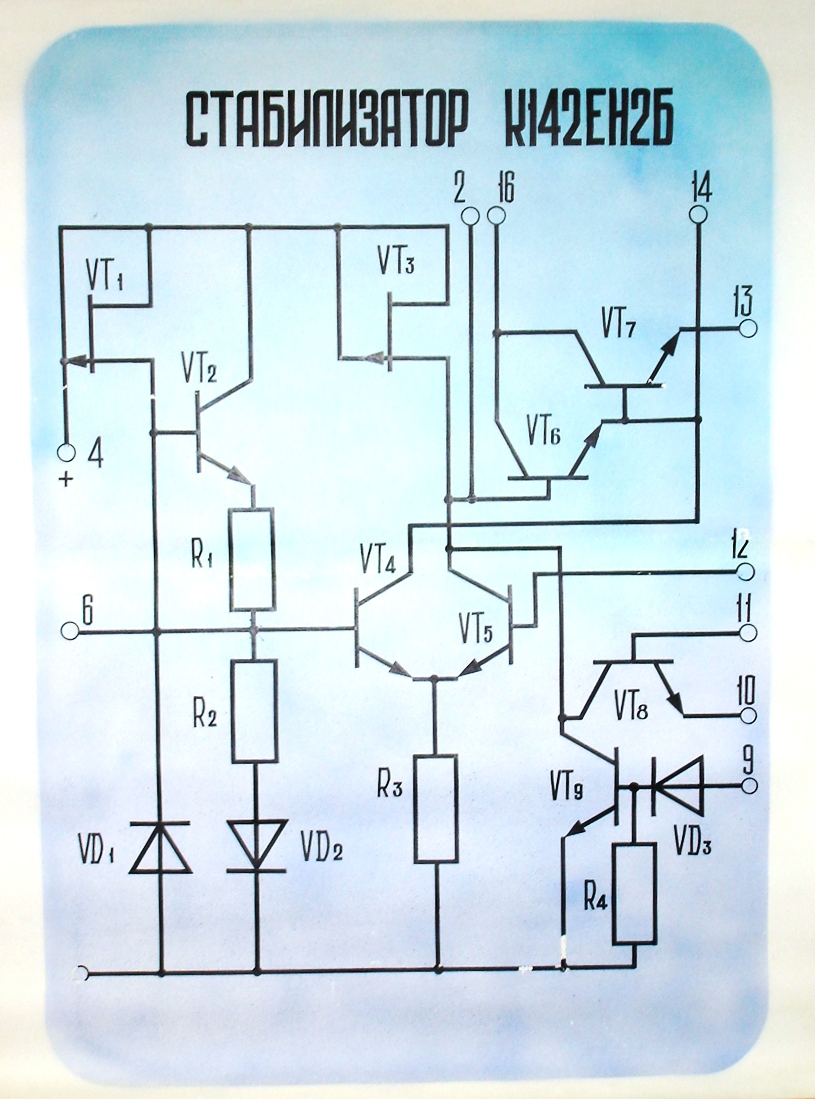 СТАБИЛИЗАТОР К142ЕН2Б
2 16 14
VT1 VT3 13
VT7
VT2
VT6
4
+
R1 VT4 12
6 VT5 11
R2 VT8 10
R3 VT9 9
VD1 VD2 VD3
R4